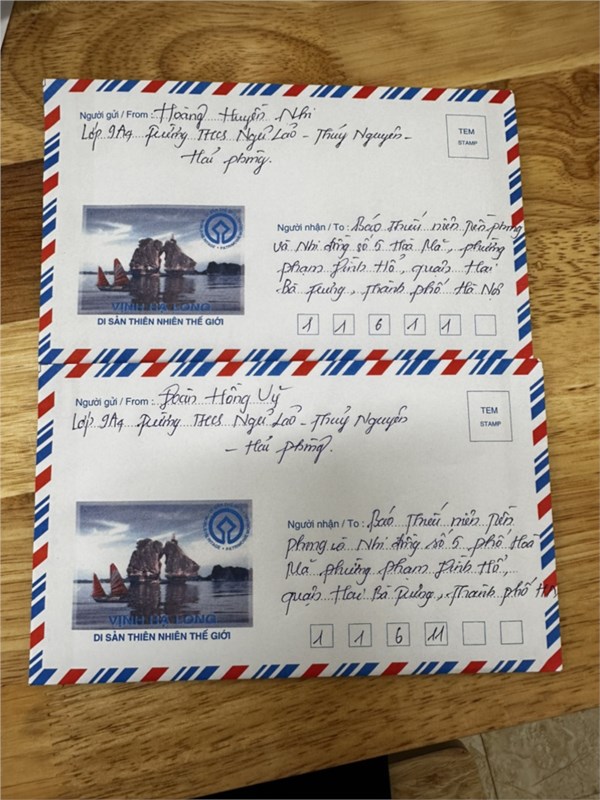 Người gửi / From : Hoàng Huyền Nhi
Lớp 9A4 Trường THCS Ngũ Lão - Thuỷ Nguyên -
Hải phòng.
TEM
STAMP
Người nhận / To : Báo Thiếu niên Tiền phong
và Nhi đồng số 5 Hoà Mã, phường
phạm Đình Hổ, quận Hai
Bà Trưng, Thành phố Hà Nội
VỊNH HẠ LONG
DI SẢN THIÊN NHIÊN THẾ GIỚI
1 1 6 1 1
Người gửi / From : Đoàn Hồng Vỹ
Lớp 9A4 Trường THCS Ngũ Lão - Thuỷ Nguyên
- Hải phòng.
TEM
STAMP
Người nhận / To : Báo Thiếu niên Tiền
phong và Nhi đồng số 5 phố Hoà
Mã phường phạm Đình Hổ,
quận Hai Bà Trưng, Thành phố
VỊNH HẠ LONG
DI SẢN THIÊN NHIÊN THẾ GIỚI
1 1 6 11